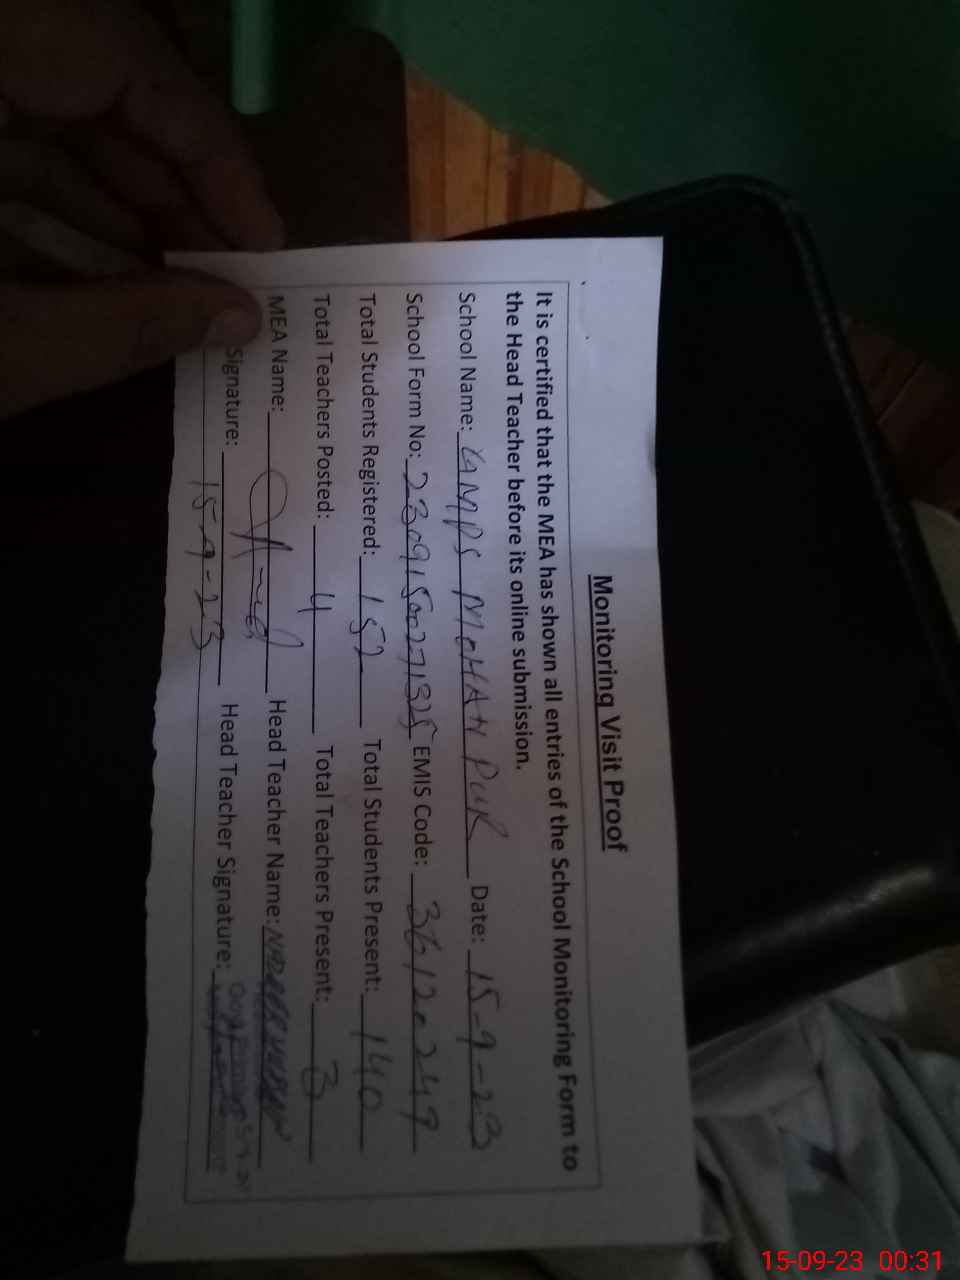 Monitoring Visit Proof
It is certified that the MEA has shown all entries of the School Monitoring Form to
the Head Teacher before its online submission.
School Name: GMPS MOHAN PUR Date: 15-9-23
School Form No: EMIS Code: 36120249
Total Students Registered: 152 Total Students Present: 140
Total Teachers Posted: 4 Total Teachers Present: 3
MEA Name: Head Teacher Name:
Signature: Head Teacher Signature:
15-9-23
15-09-23 00:31